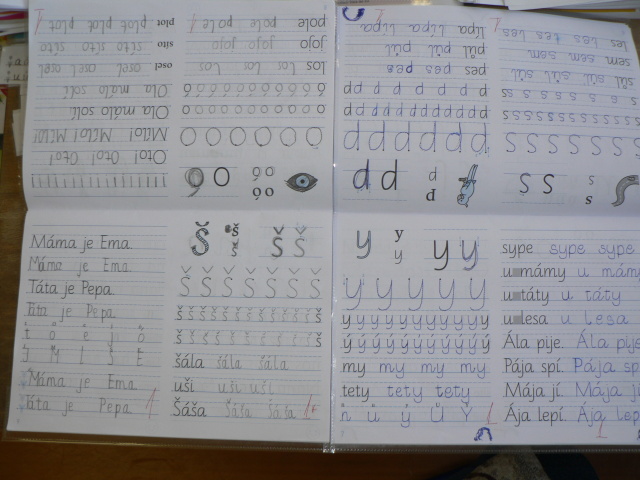 Máma je Ema.
Máma je Ema.
Táta je Pepa.
Táta je Pepa.
Máma je Ema.
Táta je Pepa.
Š š Š Š
š
Š Š Š Š Š Š Š
šála šála šála
uši uši uši
Šáša Šáša Šáša
y y y y
y
y y y y y
my my my my
tety tety tety
sype sype sype
u mámy u mámy
u táty u táty
u lesa u lesa
Ála pije. Ála pije
Pája spí. Pája sp
Mája jí. Mája jí
Ája lepí. Ája lep
O
ó ó
o o
O O O O O O O
los los los los
jojo jojo jojo
pole pole pole pole
Oto! Oto!
Málo! Málo!
Ola málo solí
Ola málo solí
osel osel osel
síto síto síto
plot plot plot plot
p p p
p
pes pes pes
půl půl půl
lípa lípa lípa
S S s
s
sůl sůl sůl
sem sem sem
les les les